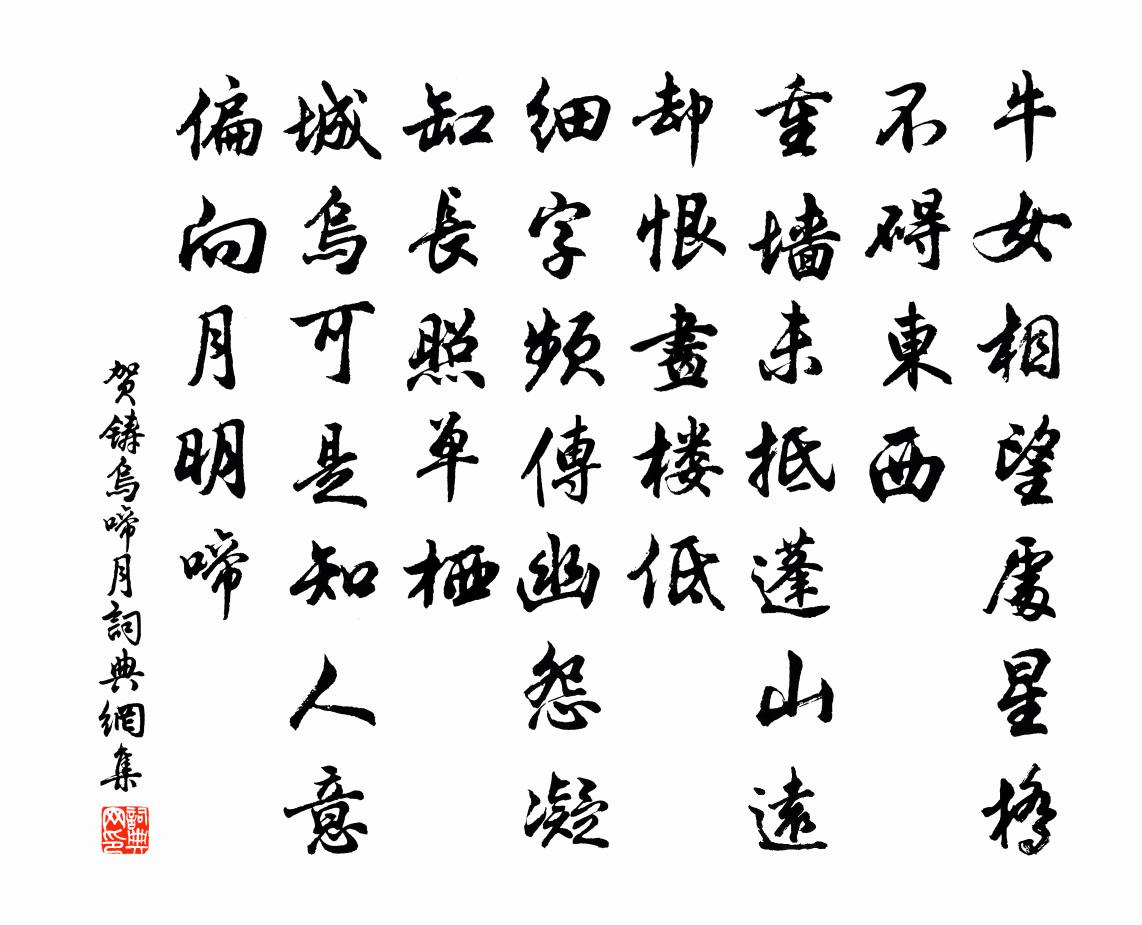 牛女相望處星橋
不碍東西
重墻未抵蓬山遠
却恨畫楼低
细字频傳幽怨凝
缸長照单栖
城烏可是知人意
偏向月明啼
贺鑄烏啼月詞典網集
詞典网印